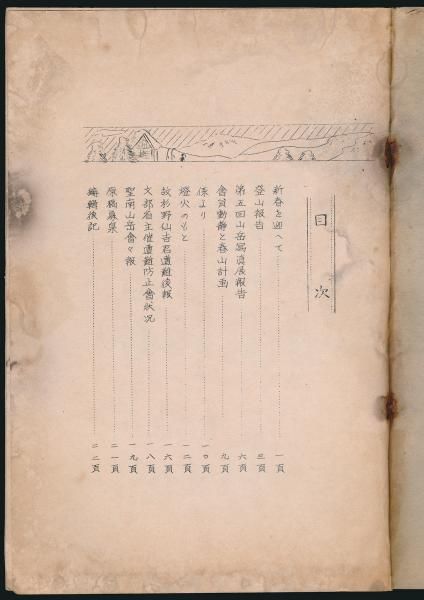 目次
新春を迎へて 一頁
登山報告 三頁
第五回山岳寫眞展報告 六頁
會員動静と春山計画 九頁
係より 一〇頁
燈火のもと 一二頁
故杉野仙吉君遭難後報 一六頁
文部省主催遭難防止會状況 一八頁
聖南山岳會々報 一九頁
原稿募集 二一頁
編輯後記 二二頁